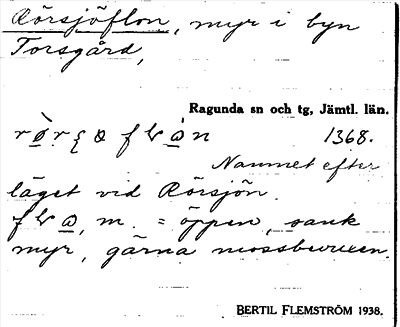 Rörsjöflon, myr i byn
Torsgård,
Ragunda sn och tg, Jämtl. län.
1368.
Namnet efter
läget vid Rörsjön.
m. = öppen, sank
myr, gärna mossbevuxen.
BERTIL FLEMSTRÖM 1938.